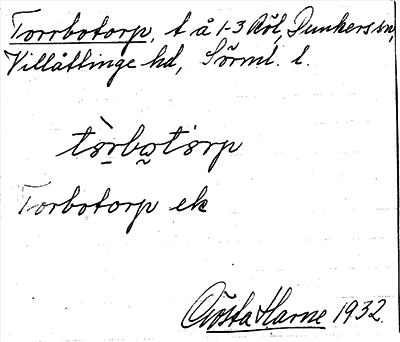 Torrbotorp, t å 1-3 Röl, Dunkers sn,
Villåttinge hd, Sörml. l.
tɔ̀rbɷtɔrp
Torbotorp ek
Gösta Harne 1932.